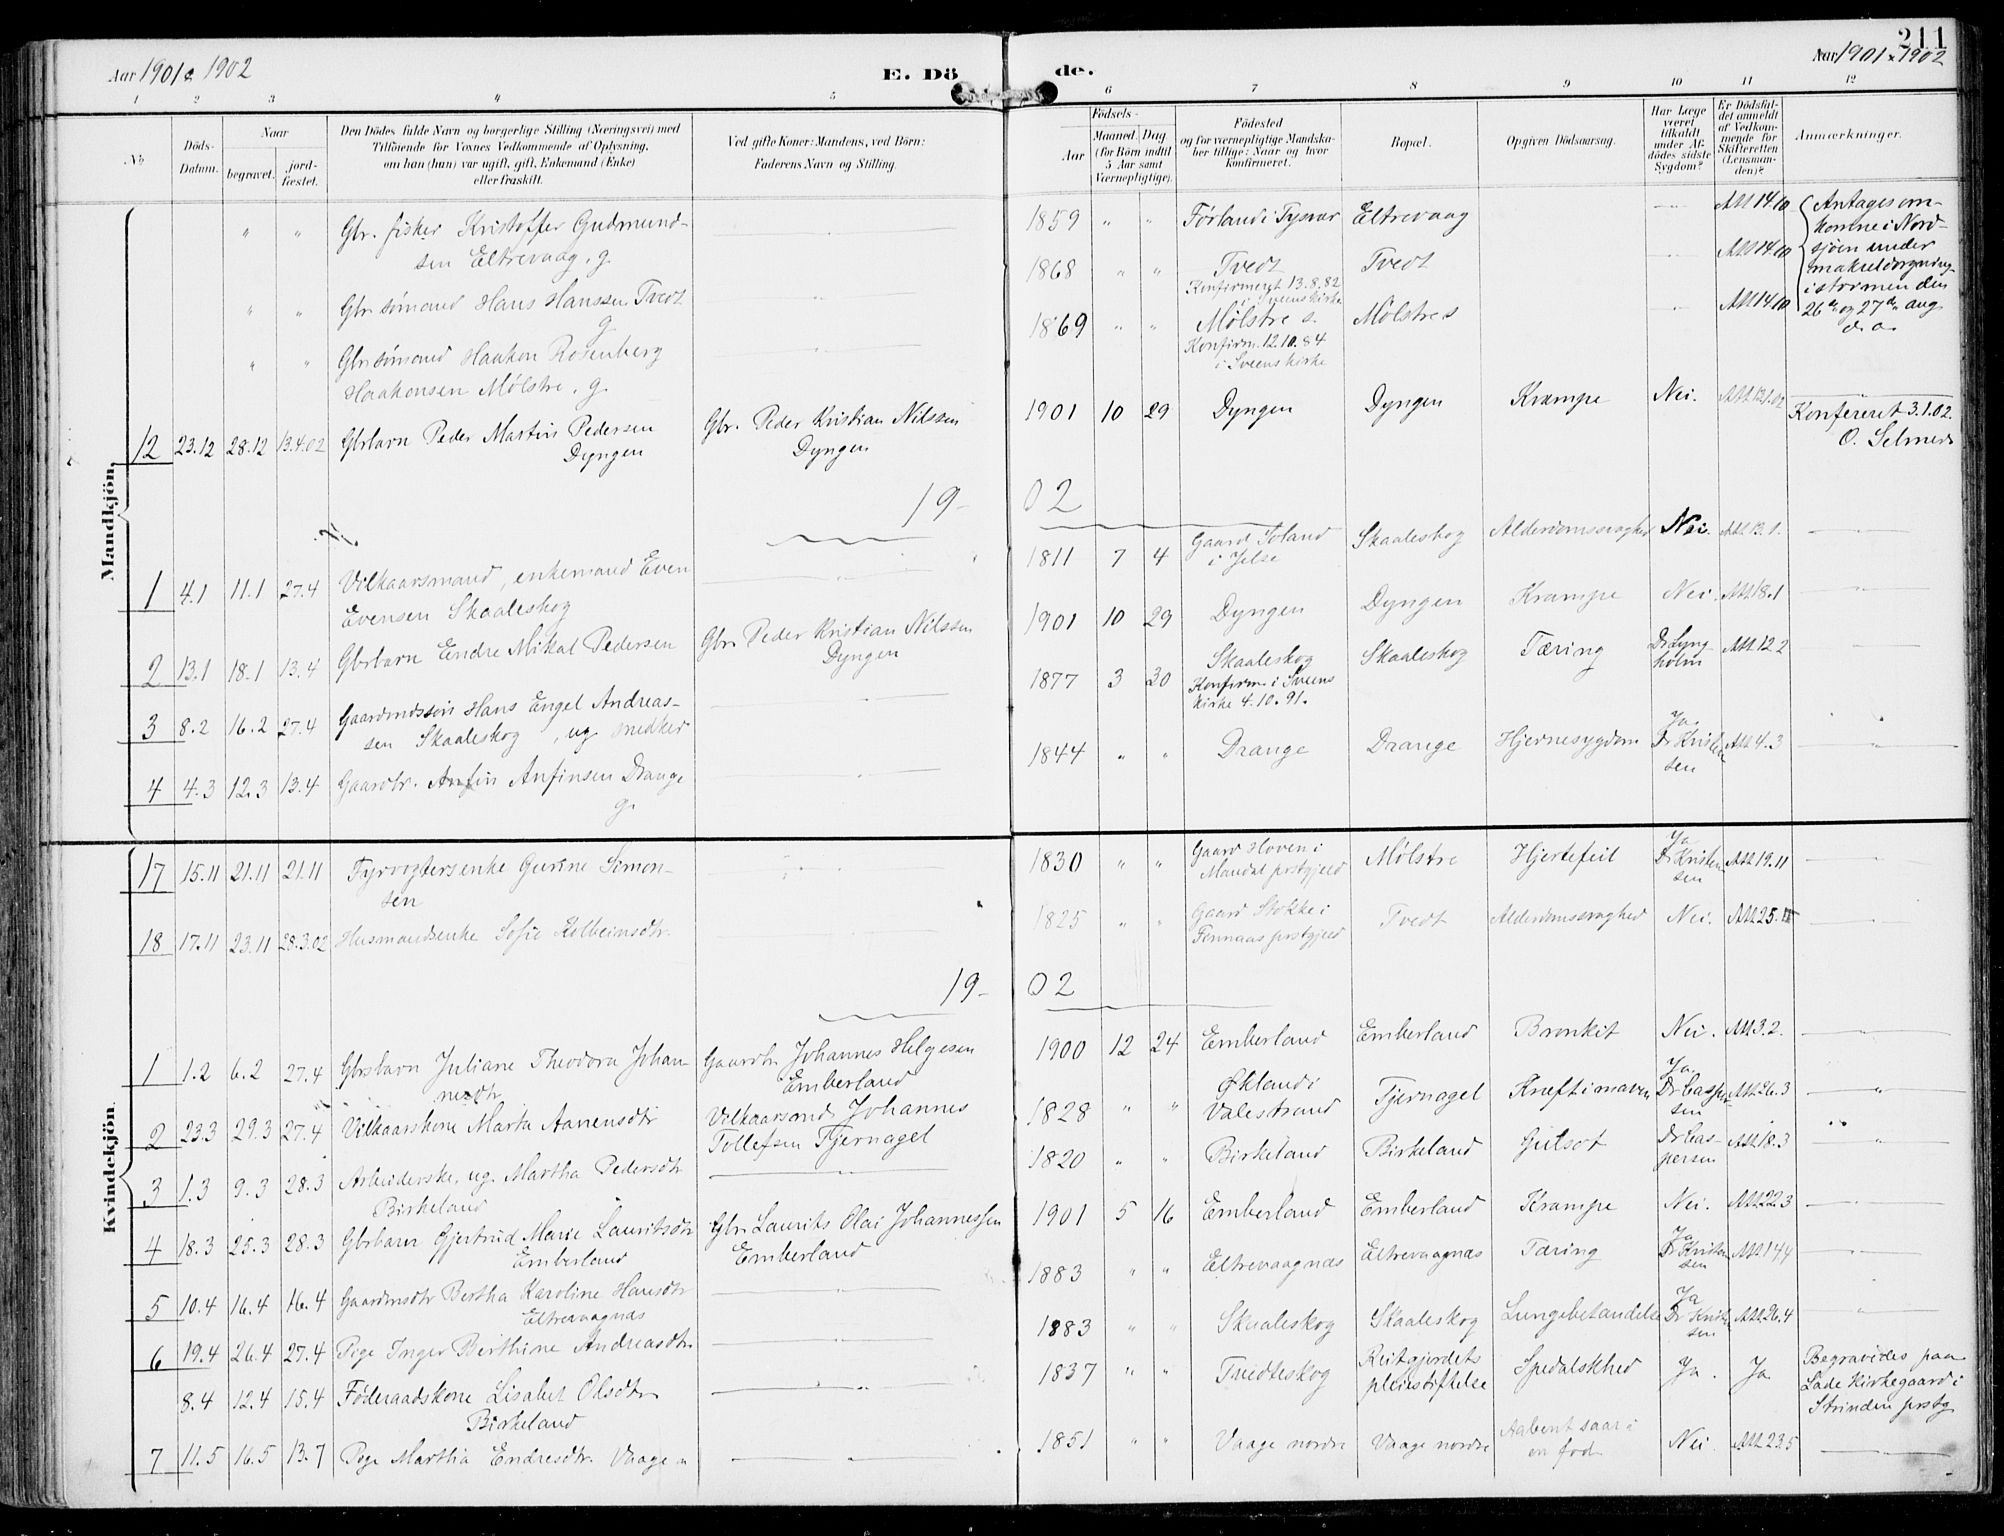 Aar 1901 & 1902
E. Dö
de.
211
Aar 1901 & 1902
1 2 3 4 5 6 7 8 9 10 11 12
No
Döds-Datum.
Naar
begravet.
jord-fæstet.
Den Dödes fulde Navn og borgerlige Stilling (Næringsvei) med
Tilföiende för Voxnes Vedkommende af Oplysning,
om han (hun) var ugift, gift, Enkemand (Enke)
eller fraskilt.
Ved gifte Koner: Mandens, ved Börn:
Faderens Navn og Stilling.
Födsels-
Aar
Maaned. Dag
(for Börn indtil
5 Aar samt
Værnepligtige).
Födested
og for værnepligtige Mandska-
ber tillige: Naar og hvor
konfirmeret.
Bopæl.
Opgiven Dödsaarsag.
Har Læge
været
tilkaldt
under Af-
dödes sidste
Sygdom?
Er Dödsfal-
det anmeldt
af Vedkom-
mende for
Skifteretten
(Lensman-
den)?
Anmærkninger.
Mandkjön.
" " Gbr. fisker Kristoffer Gudmund-
sen Eltrevaag, g. 1859 " " Førland i Tysvær Eltrevaag Att 14.10
" " Gbr sømand Hans Hanssen Tvedt
g 1868 " " Tvedt
Konfirmeret 13.8.82
i Sveens kirke Tvedt Att 14.10
" " Gbr sømand Haakon Rosenberg
Haakonsen Mølstre, g. 1869 " " Mølstre s.
Konfirm. 12.10.84
i Sveens kirke Mølstre s Att 14.10
Antages om-
komne i Nord-
sjøen under
makreldorgning
i stormen den
26de og 27de aug
d. a.
12 23.12 28.12 13.4.02 Gbrbarn Peder Martin Pedersen
Dyngen Gbr. Peder Kristian Nilssen
Dyngen 1901 10 29 Dyngen Dyngen Krampe Nei. Att 12.1.02 Konfereret 3.1.02.
O. Selmer
19-02
1 4.1 11.1 27.4 Vilkaarsmand, enkemand Even
Evensen Skaaleskog 1811 7 4 Gaard Toland
i Jelse Skaaleskog Alderdomssvaghed Nei. Att 13.1.
2 13.1 18.1 13.4 Gbrbarn Endre Mikal Pedersen Gbr. Peder Kristian Nilssen
Dyngen 1901 10 29 Dyngen Dyngen Krampe Nei Att 18.1
3 8.2 16.2 27.4 Gaardmdssøn Hans Engel Andreas-
sen Skaaleskog, ug snedker 1877 3 30 Skaaleskog
Konfirm. i Sveens
kirke 4.10.91. Skaaleskog Tæring Dr Lyng-
holm Att 12.2
4 4.3 12.3 13.4 Gaardbr. Anfin Anfinsen Drange
g. 1844 " " Drange Drange Hjernesygdom Ja.
Dr Kristen
sen Att 4.3
Kvindekjön.
17 15.11 21.11 21.11 Fyrvogtersenke Gurine Simon-
sen 1830 " " Gaard Hoven i
Mandal prstgjeld Mølstre Hjertefeil Ja
Dr Kristen
sen Att 19.11
18 17.11 23.11 28.3.02 Husmandsenke Sofie Kolbeinsdtr. 1825 " " Gaard Stokke i
Finnaas prstgjeld Tvedt Alderdomssvaghed Nei. Att 25.11
19-02
1 1.2 6.2 27.4 Gbrsbarn Juliane Theodora Johan
nesdtr Gaardbr Johannes Helgesen
Emberland 1900 12 24 Emberland Emberland Bronkit Nei. Att 3.2.
2 23.3 29.3 27.4 Vilkaarskone Marta Aanensdtr Vilkaarsmd Johannes
Tollefsen Tjernagel 1828 " " Økland i
Valestrand Tjernagel Kræft i maven Ja.
Dr Casper
sen Att 26.3
3 1.3 9.3 28.3 Arbeiderske, ug. Martha Pedersdtr
Birkeland 1820 " " Birkeland Birkeland Gulsot Dr Cas-
persen Att 18.3
4 18.3 25.3 28.3 Gbrbarn Gjertrud Marie Lauritsdtr
Emberland Gbr. Laurits Olai Johannessen
Emberland 1901 5 16 Emberland Emberland Krampe Nei. Att 22.3
5 10.4 16.4 16.4 Gaardmsdtr Bertha Karoline Hansdtr
Eltrevaagnæs 1883 " " Eltrevaagnæs Eltrevaagnæs Tæring Ja
Dr Kristen
sen Att 14.4
6 19.4 26.4 27.4 Pige Inger Berthine Andreasdtr 1883 " " Skaaleskog Skaaleskog Lungebetændelse Ja
Dr Kristen
sen Att 26.4
8.4 12.4 15.4 Føderaadskone Lisabet Olsdtr
Birkeland 1837 " " Tvedteskog Reitgjerdets
pleiestiftelse Spedalskhed Ja. Ja Begravedes paa
Lade kirkegaard i
Strinden prstg.
7 11.5 16.5 13.7 Pige Martha Endresdtr. Vaage n 1851 " " Vaage nordre Vaage nordre Aabent saar i
en fod Nei. Att 23.5